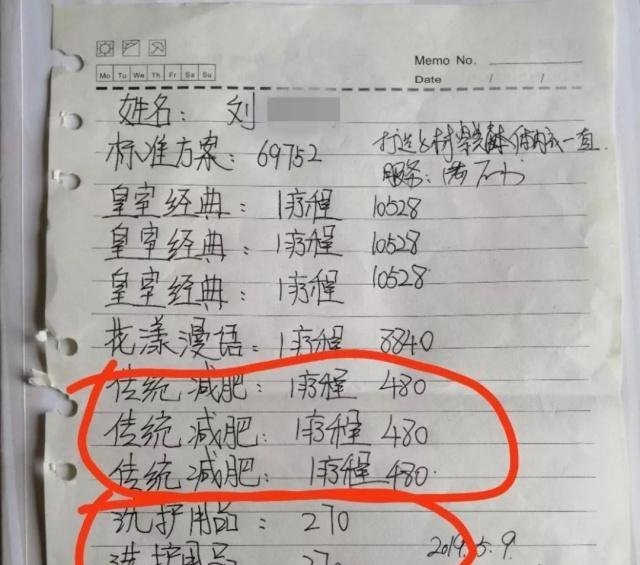 Memo No.
Mo Tu We Th Fr Sa Su
Date / /
姓名: 刘
标准方案: 69752
打造身材
服务:
皇室经典: 1疗程 10528
皇室经典: 1疗程 10528
皇室经典: 1疗程 10528
花漾漫语: 1疗程 8840
传统减肥: 1疗程 480
传统减肥: 1疗程 480
传统减肥: 1疗程 480
洗护用品: 270
洗护用品
2019.5.9